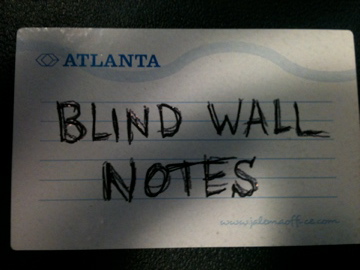 ATLANTA
BLIND WALL
NOTES
www.jalemaoffice.com